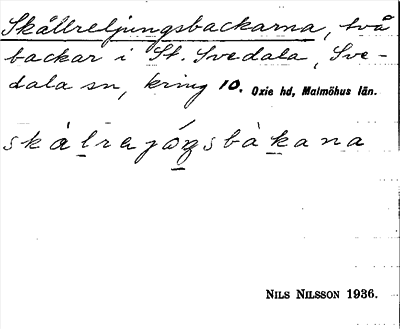 Skållreljungsbackarna, två
backar i St. Svedala, Sve-
dala sn, kring 10. Oxie hd, Malmöhus län.
skàlrajóŋsbàkana
NILS NILSSON 1936.